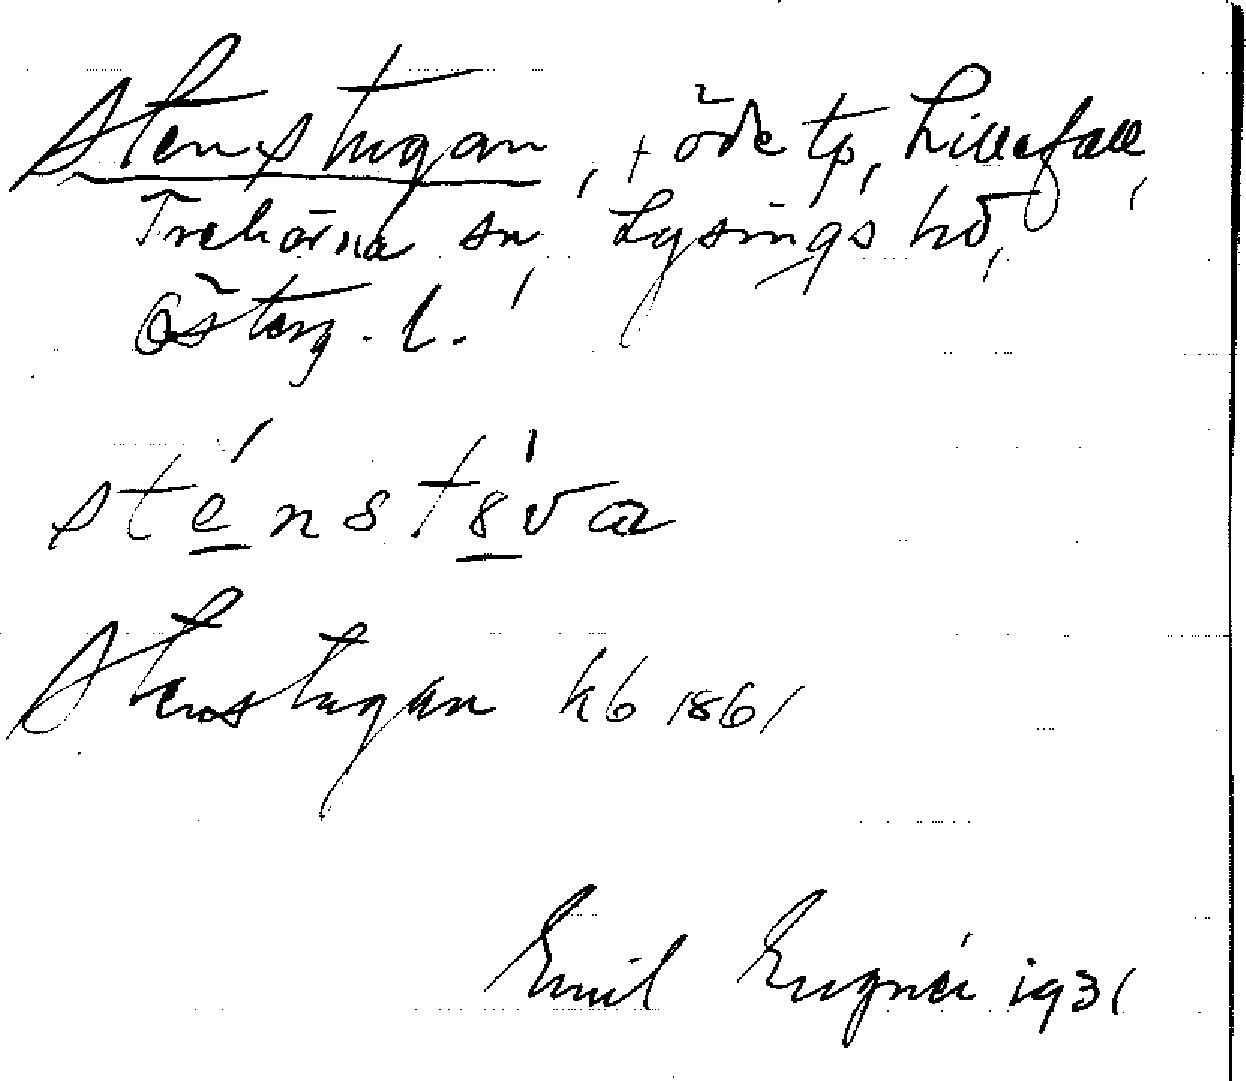 Stenstugan, + öde tp, Lillefall,
Trehörna sn, Lysings hd,
Österg. l.
sténst8̀va
Stenstugan hb 1861
Emil 1931